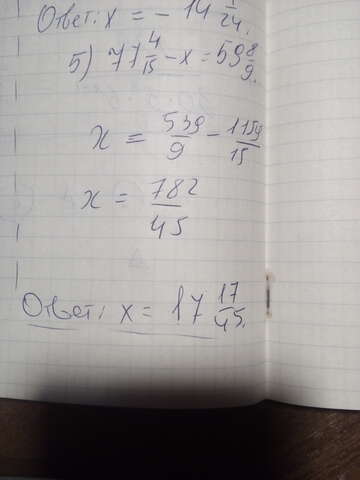 Ответ: x = - 14 1/24.
5) 77 4/15 - x = 59 8/9.
x = 539/9 - 1159/15
x = 782/45
Ответ: x = 17 17/45.